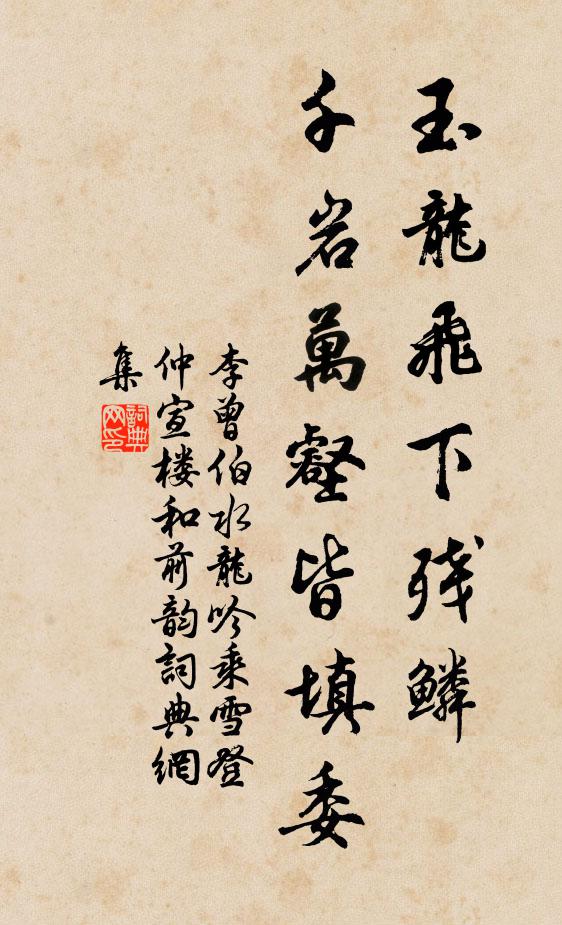 玉龍飛下残鱗
千岩萬壑皆填委
李曾伯水龍吟乘雪登
仲宣楼和前韵詞典網
集
詞典
网印